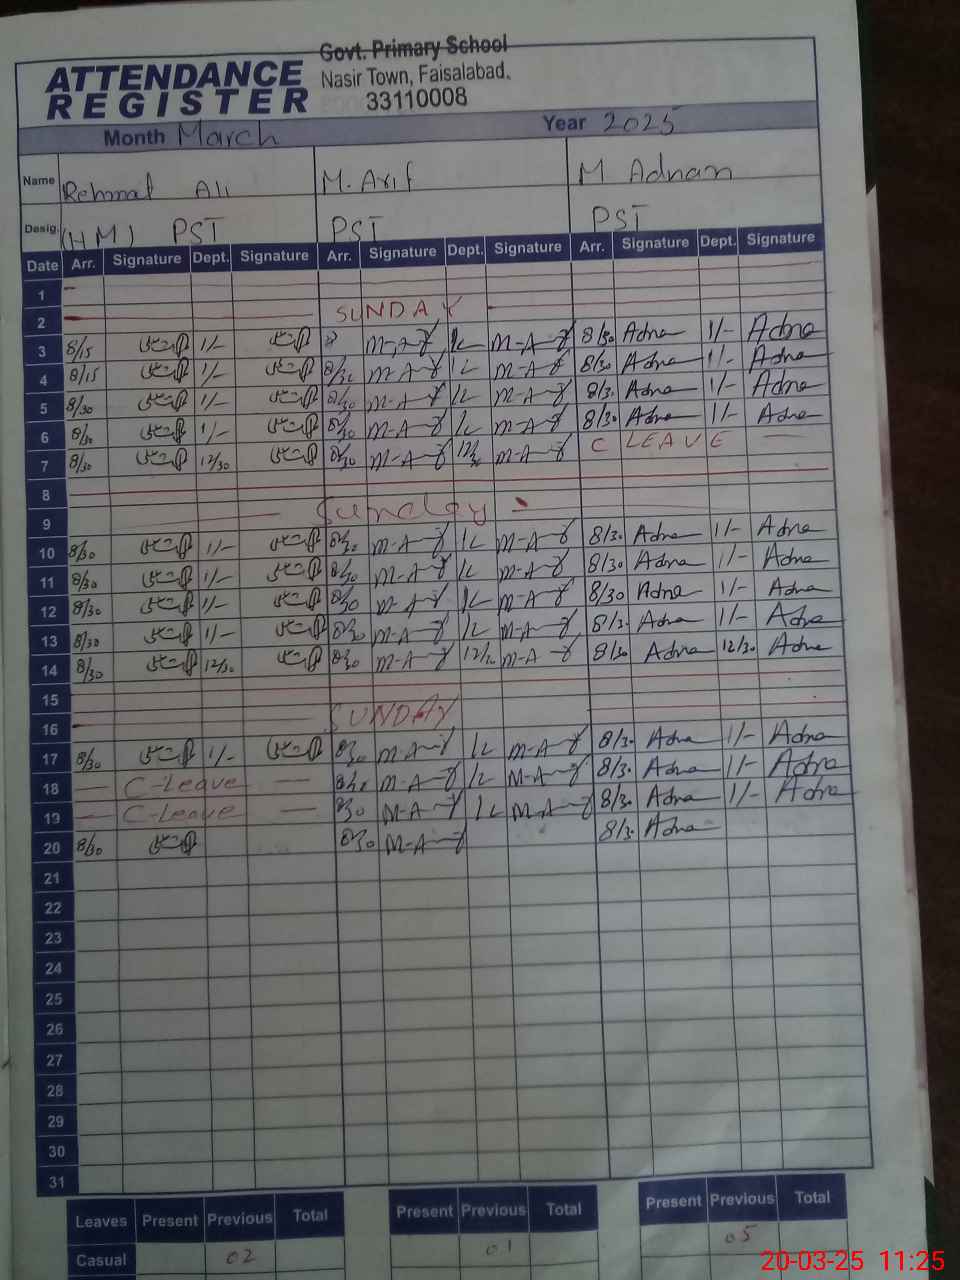 Govt. Primary School
ATTENDANCE Nasir Town, Faisalabad.
REGISTER 33110008
Month March Year 2025
Name Rehmat Ali M. Arif M Adnan
Desig. (HM) PST PST PST
Date Arr. Signature Dept. Signature Arr. Signature Dept. Signature Arr. Signature Dept. Signature
1
2 SUNDAY
3 8/15 1/- M-A 1/- M-A 8/30 Adna 1/- Adna
4 8/15 1/- 8/30 M-A 1/- M-A 8/30 Adna 1/- Adna
5 8/30 1/- 8/30 M-A 1/- M-A 8/3. Adna 1/- Adna
6 8/30 1/- 8/30 M-A 1/- M-A 8/30 Adna 1/- Adna
7 8/30 12/30 8/30 M-A 12/30 M-A C LEAVE
8
9 Sunday
10 8/30 1/- 8/30 M-A 1/- M-A 8/30 Adna 1/- Adna
11 8/30 1/- 8/30 M-A 1/- M-A 8/30 Adna 1/- Adna
12 8/30 1/- 8/30 M-A 1/- M-A 8/30 Adna 1/- Adna
13 8/30 1/- 8/30 M-A 1/- M-A 8/3. Adna 1/- Adna
14 8/30 12/30 8/30 M-A 12/30 M-A 8/30 Adna 12/30 Adna
15
16 SUNDAY
17 8/30 1/- 8/30 M-A 1/- M-A 8/3. Adna 1/- Adna
18 — C-Leave — 8/30 M-A 1/- M-A 8/3. Adna 1/- Adna
19 — C-Leave — 8/30 M-A 1/- M-A 8/3. Adna 1/- Adna
20 8/30 8/30 M-A 8/3. Adna
21
22
23
24
25
26
27
28
29
30
31
Leaves Present Previous Total Present Previous Total Present Previous Total
Casual 02 01 05
20-03-25 11:25